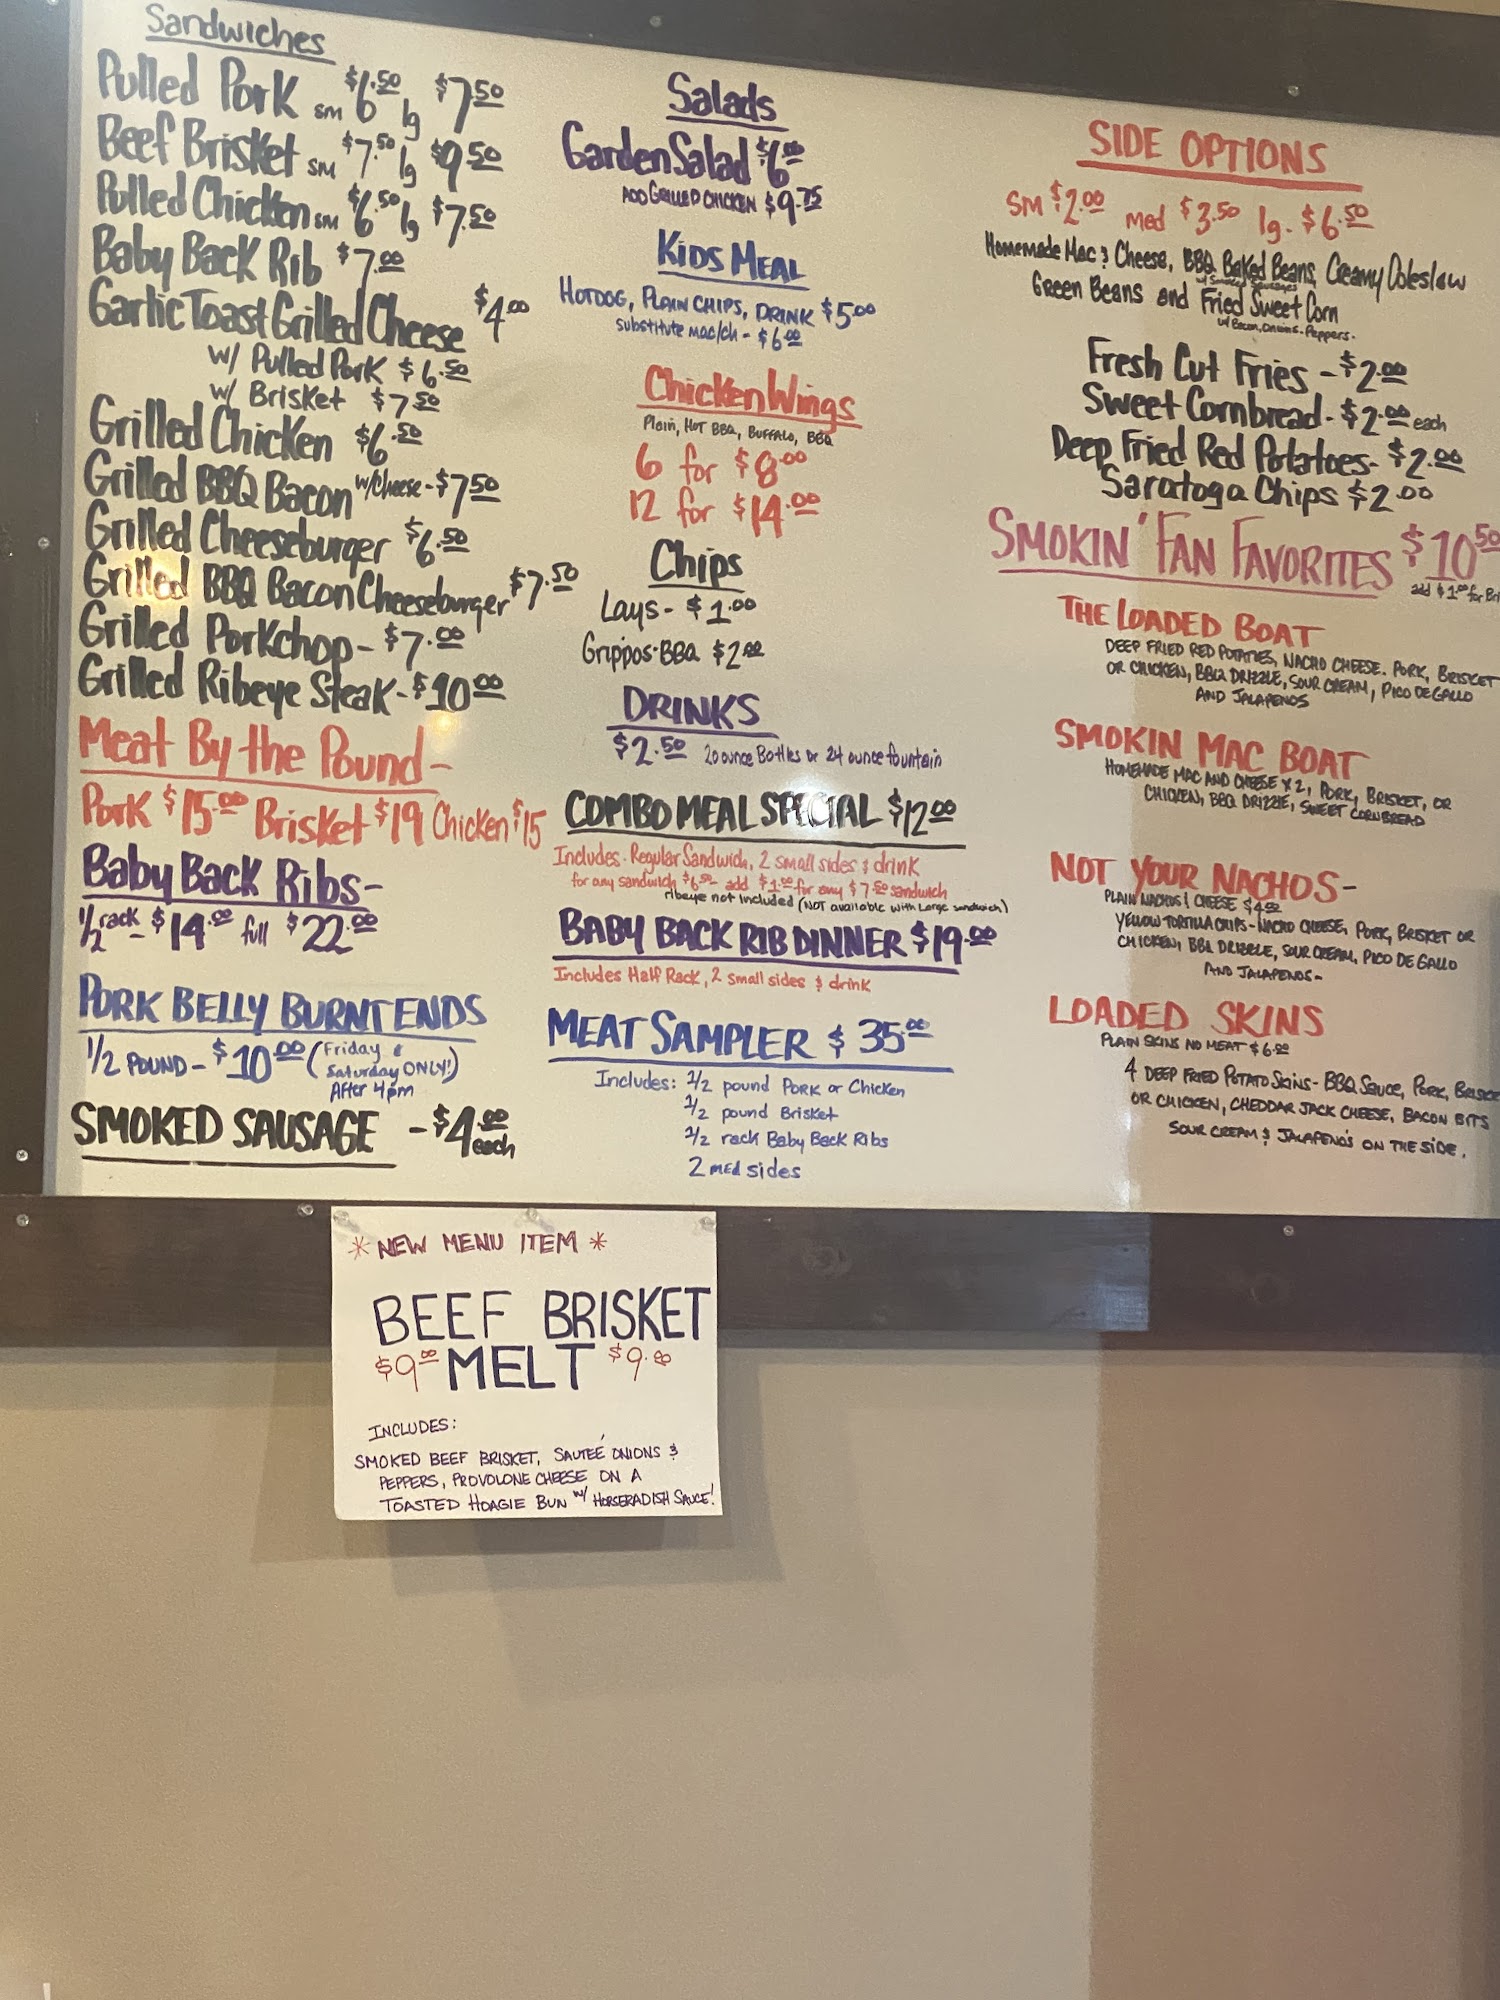 Sandwiches
Pulled Pork sm $6.50 lg $7.50
Beef Brisket sm $7.50 lg $9.50
Pulled Chicken sm $6.50 lg $7.50
Baby Back Rib $7.00
Garlic Toast Grilled Cheese $4.00
w/ Pulled Pork $6.50
w/ Brisket $7.50
Grilled Chicken $6.50
Grilled BBQ Bacon w/Cheese - $7.50
Grilled Cheeseburger $6.50
Grilled BBQ Bacon Cheeseburger $7.50
Grilled Porkchop - $7.00
Grilled Ribeye Steak - $10.00
Meat By the Pound -
Pork $15.00 Brisket $19 Chicken $15
Baby Back Ribs -
1/2 rack - $14.00 full $22.00
PORK BELLY BURNT ENDS
1/2 POUND - $10.00 (Friday &
Saturday ONLY!)
After 4pm
SMOKED SAUSAGE - $4.00 each
Salads
Garden Salad $6.00
ADD GRILLED CHICKEN $9.75
KIDS MEAL
HOTDOG, PLAIN CHIPS, DRINK $5.00
substitute mac/ch - $6.00
Chicken Wings
Plain, HOT BBQ, BUFFALO, BBQ
6 for $8.00
12 for $14.00
Chips
Lays - $1.00
Grippos-BBQ $2.00
DRINKS
$2.50 20 ounce Bottles or 24 ounce fountain
COMBO MEAL SPECIAL $12.00
Includes - Regular Sandwich, 2 small sides & drink
for any sandwich $6.50 - add $1.00 for any $7.50 sandwich
ribeye not included (NOT available with Large sandwich)
BABY BACK RIB DINNER $19.00
Includes Half Rack, 2 small sides & drink
MEAT SAMPLER $35.00
Includes: 1/2 pound Pork or Chicken
1/2 pound Brisket
1/2 rack Baby Back Ribs
2 med sides
SIDE OPTIONS
SM $2.00 med $3.50 lg. $6.50
Homemade Mac & Cheese, BBQ Baked Beans, Creamy Coleslaw
w/ Smoked Sausages
Green Beans and Fried Sweet Corn
w/ Bacon, Onions - Peppers.
Fresh Cut Fries - $2.00
Sweet Cornbread - $2.00 each
Deep Fried Red Potatoes - $2.00
Saratoga Chips $2.00
SMOKIN' FAN FAVORITES $10.50
add $1.00 for Bri
THE LOADED BOAT
DEEP FRIED RED POTATOES, NACHO CHEESE. PORK, BRISKET
OR CHICKEN, BBQ DRIZZLE, SOUR CREAM, PICO DE GALLO
AND JALAPENOS
SMOKIN MAC BOAT
HOMEMADE MAC AND CHEESE X 2, PORK, BRISKET, OR
CHICKEN, BBQ DRIZZLE, SWEET CORNBREAD
NOT YOUR NACHOS -
PLAIN NACHOS & CHEESE $4.00
YELLOW TORTILLA CHIPS - NACHO CHEESE, PORK, BRISKET OR
CHICKEN, BBQ DRIZZLE, SOUR CREAM, PICO DE GALLO
AND JALAPENOS -
LOADED SKINS
PLAIN SKINS NO MEAT $6.00
4 DEEP FRIED POTATO SKINS - BBQ SAUCE, PORK, BRISKE
OR CHICKEN, CHEDDAR JACK CHEESE, BACON BITS
SOUR CREAM & JALAPENO'S ON THE SIDE.
* NEW MENU ITEM *
BEEF BRISKET
$9.00 MELT $9.00
INCLUDES:
SMOKED BEEF BRISKET, SAUTEÉ ONIONS &
PEPPERS, PROVOLONE CHEESE ON A
TOASTED HOAGIE BUN w/ HORSERADISH SAUCE!